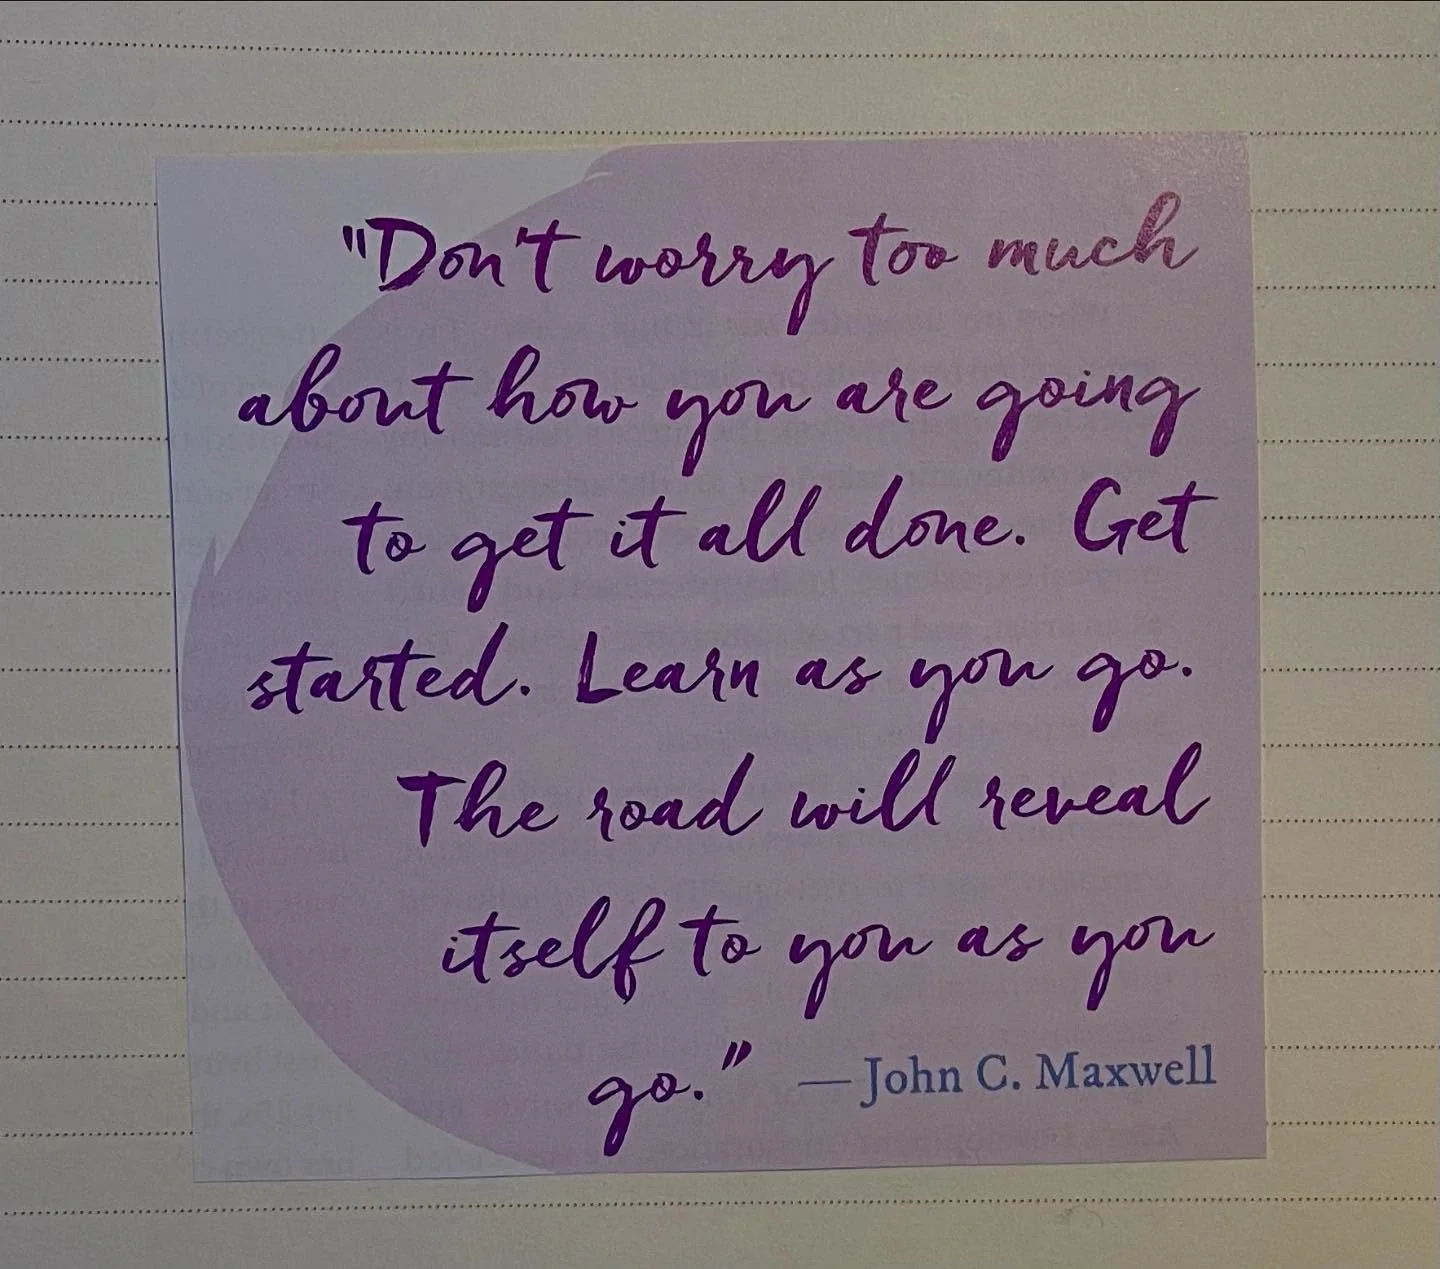 "Don't worry too much
about how you are going
to get it all done. Get
started. Learn as you go.
The road will reveal
itself to you as you
go." — John C. Maxwell